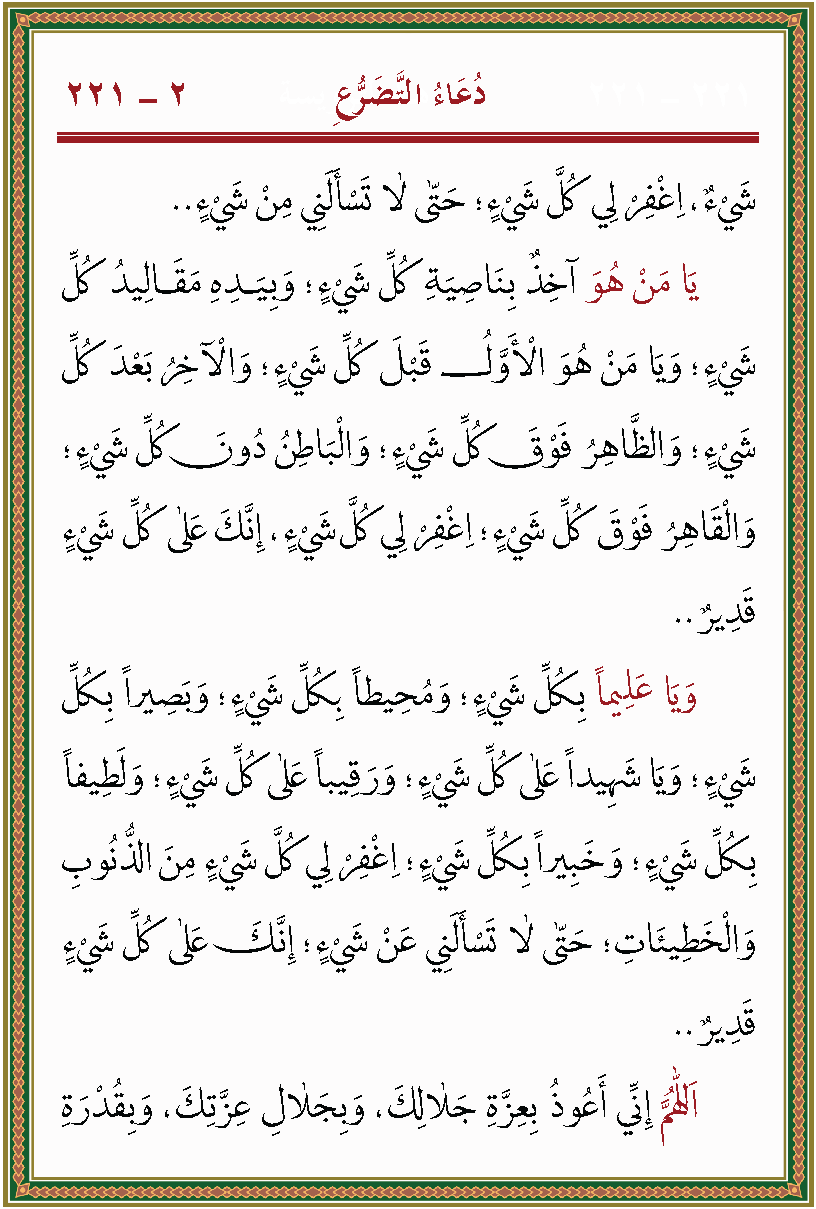 دُعَاءُ التَّضَرُّعِ ٢ - ٢٢١
شَيْءٌ، اِغْفِرْ لِي كُلَّ شَيْءٍ؛ حَتّٰى لَا تَسْأَلَنِي مِنْ شَيْءٍ..
يَا مَنْ هُوَ آخِذٌ بِنَاصِيَةِ كُلِّ شَيْءٍ؛ وَبِيَدِهِ مَقَالِيدُ كُلِّ
شَيْءٍ؛ وَيَا مَنْ هُوَ الْأَوَّلُ قَبْلَ كُلِّ شَيْءٍ؛ وَالْآخِرُ بَعْدَ كُلِّ
شَيْءٍ؛ وَالظَّاهِرُ فَوْقَ كُلِّ شَيْءٍ؛ وَالْبَاطِنُ دُونَ كُلِّ شَيْءٍ؛
وَالْقَاهِرُ فَوْقَ كُلِّ شَيْءٍ؛ اِغْفِرْ لِي كُلَّ شَيْءٍ، إِنَّكَ عَلٰى كُلِّ شَيْءٍ
قَدِيرٌ..
وَيَا عَلِيماً بِكُلِّ شَيْءٍ؛ وَمُحِيطاً بِكُلِّ شَيْءٍ؛ وَبَصِيراً بِكُلِّ
شَيْءٍ؛ وَيَا شَهِيداً عَلٰى كُلِّ شَيْءٍ؛ وَرَقِيباً عَلٰى كُلِّ شَيْءٍ؛ وَلَطِيفاً
بِكُلِّ شَيْءٍ؛ وَخَبِيراً بِكُلِّ شَيْءٍ؛ اِغْفِرْ لِي كُلَّ شَيْءٍ مِنَ الذُّنُوبِ
وَالْخَطِيئَاتِ؛ حَتّٰى لَا تَسْأَلَنِي عَنْ شَيْءٍ؛ إِنَّكَ عَلٰى كُلِّ شَيْءٍ
قَدِيرٌ..
اَللّٰهُمَّ إِنِّي أَعُوذُ بِعِزَّةِ جَلَالِكَ، وَبِجَلَالِ عِزَّتِكَ، وَبِقُدْرَةِ